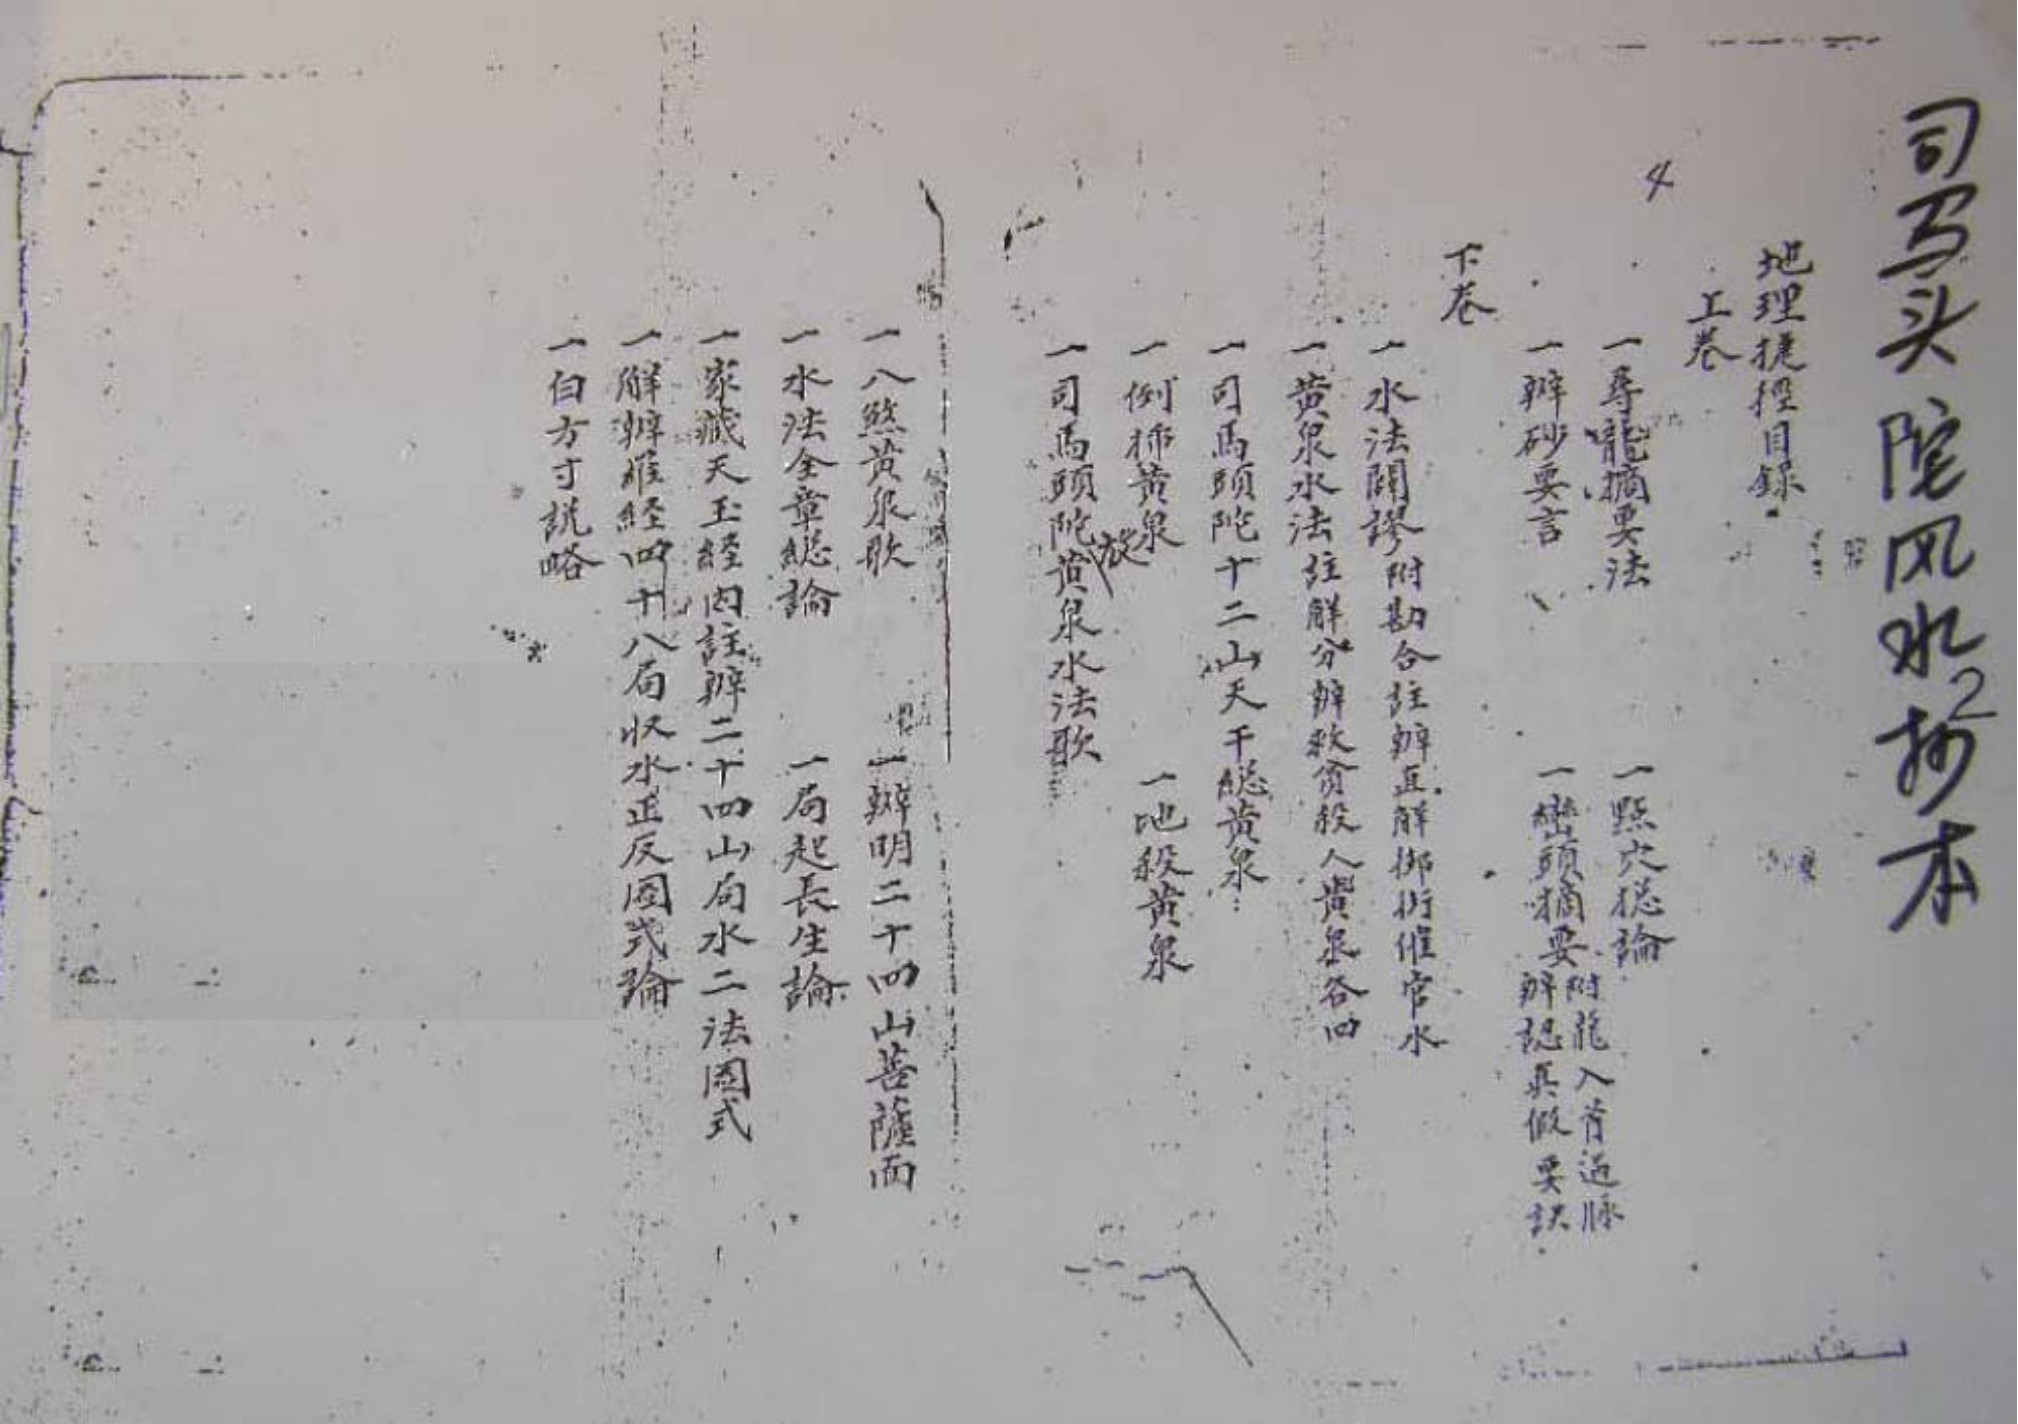 司马头陀风水抄本
2
4
地理捷徑目錄
上卷
一尋龍摘要法 一點穴總論
一辦砂要言 一巒頭摘要 附龍入首過脉辦認真假要訣
下卷
一水法闢謬附勘合註辦正解挪衙催官水
一黄泉水法註解分辦救貧殺人黄泉各四
一司馬頭陀十二山天干総黄泉
一例 黄泉 一地殺黄泉
一司馬頭陀黄泉水法歌
放
一八煞黄泉歌 一辦明二十四山菩薩面
一水法全章総論 一局起長生論
一家藏天玉経内註辦二十四山局水二法圖式
一解辦 経四十八局収水正反圖式論
一自方寸説略